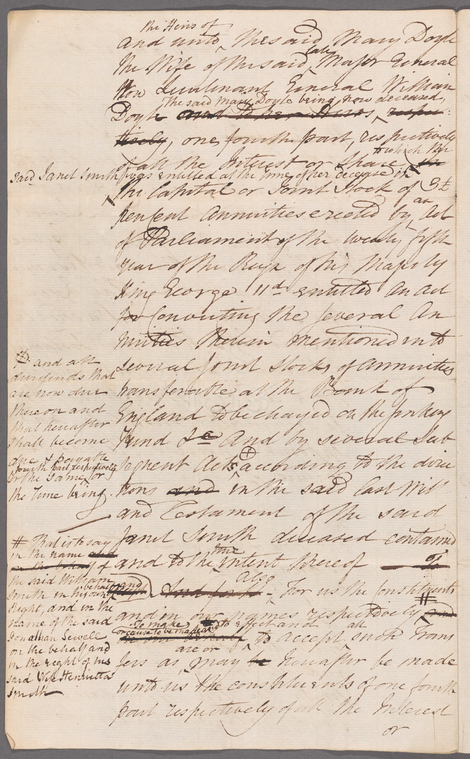 the Heirs of
and unto the said Mary Doyle
the Wife of the said late Major General
now Lieutenant General William
the said Mary Doyle being now deceased,
Doyle and to her Heirs,
one fourth part, respectively
of all the Interest or Share
to which the
said Janet Smith was entitled at the time of her decease in
the Capital or Joint Stock of 3 £
per Cent Annuities erected by an Act
of Parliament of the twenty fifth
year of the Reign of his Majesty
King George IId entitled An Act
for converting the several An
nuities therein mentioned into
several Joint Stocks of Annuities
transferrable at the Bank of
England to be charged on the sinking
Fund And by several Sub
sequent Acts according to the direc
tions and in the said Last Will
and Testament of the said
Janet Smith deceased contained
and to the true intent thereof
also for us the Constituents
and in our names respectively and
to make
or cause to be made
to accept such Trans
are or
fers as may be hereafter be made
unto us the constituents of one fourth
part respectively of all the Interest
or
and all
dividends that
are now due
thereon and
that hereafter
shall become
due & payable
fourth part respectively
for the same for
the time being.
# That is to say
in the name
the said William
Smith in his own
Right, and in the
name of the said
Jonathan Sewell
on the behalf and
in the right of his
said Wife Henrietta
Smith